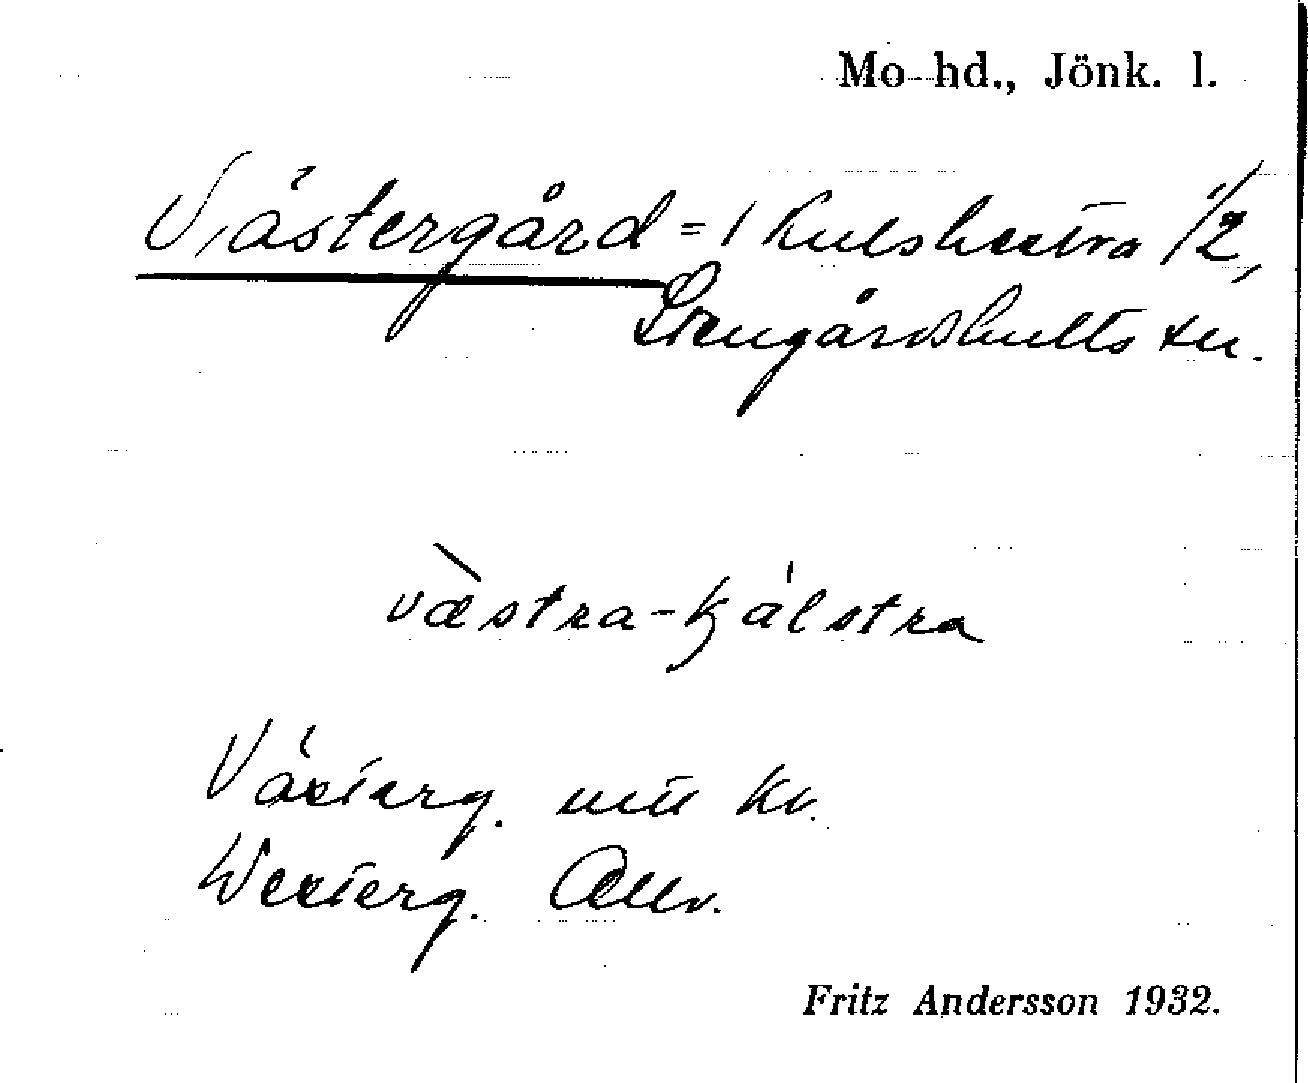 Mo hd., Jönk. l.
Västergård = 1 Kulshestra 1/2,
Stengårdshults sn.
væ̀stra-kálstra
Västerg.
Westerg.
Fritz Andersson 1932.